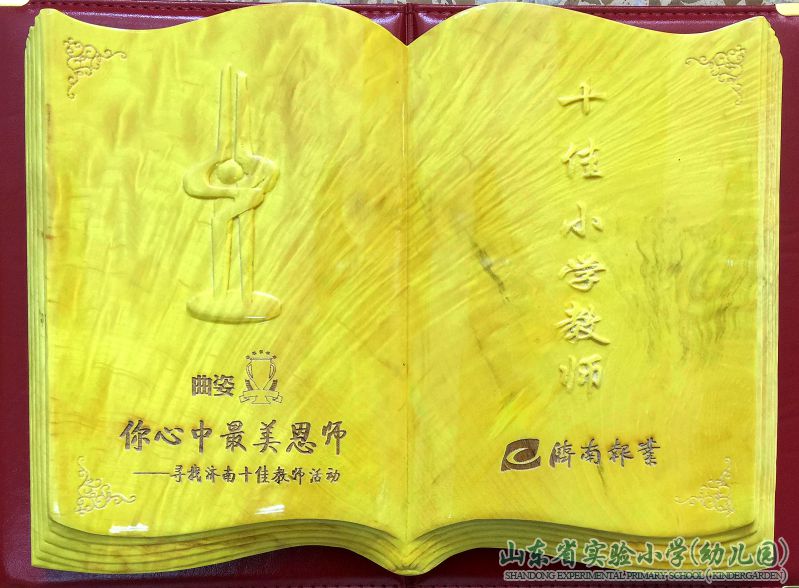 曲姿
你心中最美恩师
——寻找济南十佳教师活动
十佳小学教师
济南报业
山东省实验小学(幼儿园)
SHANDONG EXPERIMENTAL PRIMARY SCHOOL (KINDERGARDEN)